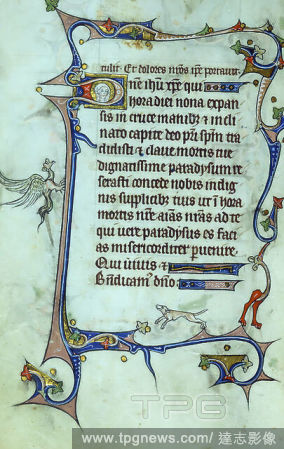 tulit Et dolores nr̄os ip̄e portauit
ne ihū xp̄e qui
hora diei nona expan
sis in cruce manibz & incli
nato capite deo pr̄i sp̄m tra
didisti & claue mortis tue
dignatissime paradysum re
serasti concede nobis indig
nis supplicibz tuis ut ī hora
mortis nr̄e aīas nr̄as ad te
qui uere paradysus es faci
as misericorditer puenire.
Qui uiuis &
Bn̄dicam' dn̄o
TPG
www.tpgnews.com/達志影像